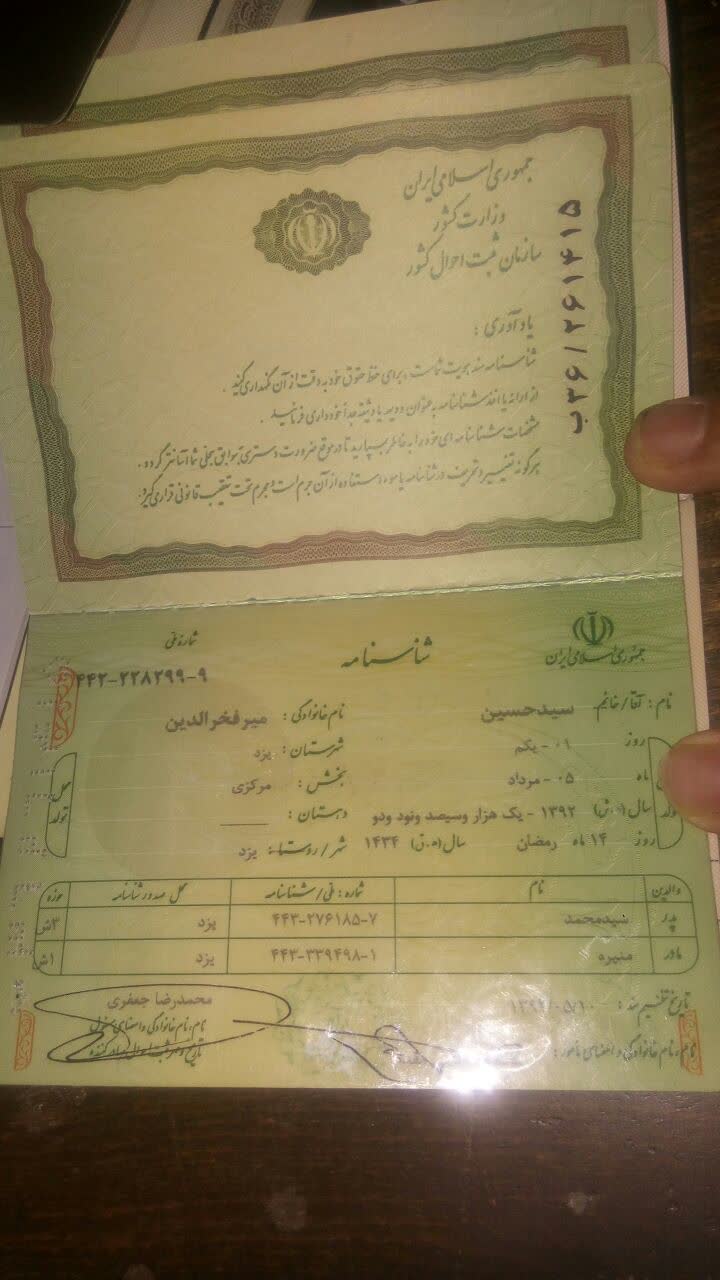 جمهوری اسلامی ایران
وزارت کشور
سازمان ثبت احوال کشور
ب۳۶/۲۶۱۴۱۵
یادآوری :
شناسنامه سند هویت شماست ، برای حفظ حقوق خود به دقت از آن نگهداری کنید .
از ارائه یا اخذ شناسنامه به عنوان ودیعه یا وثیقه جداً خودداری فرمائید .
مشخصات شناسنامه ای خود را به خاطر بسپارید تا در موقع ضرورت دسترسی به سوابق سجلی شما آسانتر گردد .
هرگونه تغییر و تحریف در شناسنامه یا سوء استفاده از آن جرم است و مجرم تحت تعقیب قانونی قرار می گیرد .
جمهوری اسلامی ایران
شناسنامه
شماره ملی
۴۴۳-۲۲۸۲۹۹-۹
نام : آقا/خانم سیدحسین
نام خانوادگی : میرفخرالدین
روز ۰۱ - یکم
شهرستان : یزد
ماه ۰۵ - مرداد
بخش : مرکزی
سال (ه.ش) ۱۳۹۲ - یک هزار وسیصد ونود ودو
دهستان :
روز ۱۴ ماه رمضان سال (ه.ق) ۱۴۳۴
شهر/روستا : یزد
تولد
محل تولد
والدین نام شماره : ملی/شناسنامه محل صدور شناسنامه حوزه
پدر سیدمحمد ۴۴۳-۲۷۶۱۸۵-۷ یزد ۳ش
مادر منیره ۴۴۳-۳۳۹۴۹۸-۱ یزد ۱ش
تاریخ تنظیم سند : ۱۳۹۲/۰۵/۱۰
محمدرضا جعفری
نام، نام خانوادگی و امضای مامور :
نام، نام خانوادگی و امضای مسئول